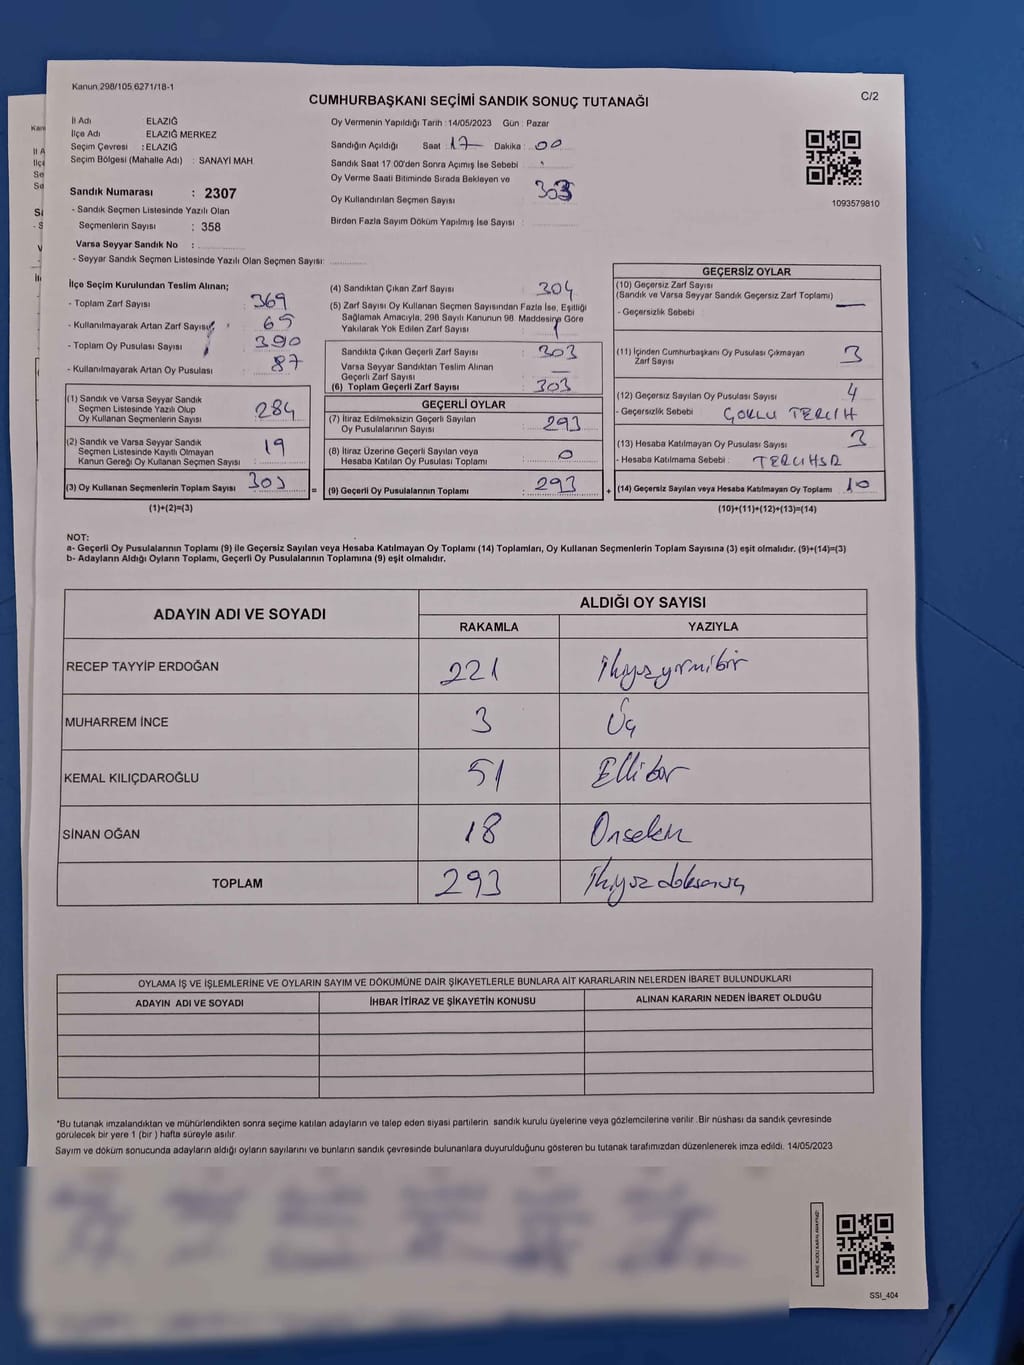 Kanun:298/105,6271/18-1
C/2
CUMHURBAŞKANI SEÇİMİ SANDIK SONUÇ TUTANAĞI
İl Adı ELAZIĞ
İlçe Adı ELAZIĞ MERKEZ
Seçim Çevresi : ELAZIĞ
Seçim Bölgesi (Mahalle Adı) : SANAYİ MAH.
Sandık Numarası : 2307
- Sandık Seçmen Listesinde Yazılı Olan
Seçmenlerin Sayısı : 358
Varsa Seyyar Sandık No :
- Seyyar Sandık Seçmen Listesinde Yazılı Olan Seçmen Sayısı:
Oy Vermenin Yapıldığı Tarih : 14/05/2023 Gün : Pazar
Sandığın Açıldığı Saat : 17 Dakika : 00
Sandık Saat 17.00'den Sonra Açımış İse Sebebi :
Oy Verme Saati Bitiminde Sırada Bekleyen ve
Oy Kullandırılan Seçmen Sayısı : 303
Birden Fazla Sayım Döküm Yapılmış İse Sayısı :
1093579810
İlçe Seçim Kurulundan Teslim Alınan;
- Toplam Zarf Sayısı : 369
- Kullanılmayarak Artan Zarf Sayısı : 65
- Toplam Oy Pusulası Sayısı : 390
- Kullanılmayarak Artan Oy Pusulası : 87
(1) Sandık ve Varsa Seyyar Sandık
Seçmen Listesinde Yazılı Olup
Oy Kullanan Seçmenlerin Sayısı : 284
(2) Sandık ve Varsa Seyyar Sandık
Seçmen Listesinde Kayıtlı Olmayan
Kanun Gereği Oy Kullanan Seçmen Sayısı : 19
(3) Oy Kullanan Seçmenlerin Toplam Sayısı : 303
(1)+(2)=(3)
(4) Sandıktan Çıkan Zarf Sayısı : 304
(5) Zarf Sayısı Oy Kullanan Seçmen Sayısından Fazla İse, Eşitliği
Sağlamak Amacıyla, 298 Sayılı Kanunun 98. Maddesine Göre
Yakılarak Yok Edilen Zarf Sayısı : 1
Sandıkta Çıkan Geçerli Zarf Sayısı : 303
Varsa Seyyar Sandıktan Teslim Alınan
Geçerli Zarf Sayısı : —
(6) Toplam Geçerli Zarf Sayısı : 303
GEÇERLİ OYLAR
(7) İtiraz Edilmeksizin Geçerli Sayılan
Oy Pusulalarının Sayısı : 293
(8) İtiraz Üzerine Geçerli Sayılan veya
Hesaba Katılan Oy Pusulası Toplamı : 0
= (9) Geçerli Oy Pusulalarının Toplamı : 293
GEÇERSİZ OYLAR
(10) Geçersiz Zarf Sayısı
(Sandık ve Varsa Seyyar Sandık Geçersiz Zarf Toplamı) : —
- Geçersizlik Sebebi :
(11) İçinden Cumhurbaşkanı Oy Pusulası Çıkmayan
Zarf Sayısı : 3
(12) Geçersiz Sayılan Oy Pusulası Sayısı : 4
- Geçersizlik Sebebi : ÇOKLU TERCİH
(13) Hesaba Katılmayan Oy Pusulası Sayısı : 3
- Hesaba Katılmama Sebebi :
+ (14) Geçersiz Sayılan veya Hesaba Katılmayan Oy Toplamı : 10
(10)+(11)+(12)+(13)=(14)
NOT:
a- Geçerli Oy Pusulalarının Toplamı (9) ile Geçersiz Sayılan veya Hesaba Katılmayan Oy Toplamı (14) Toplamları, Oy Kullanan Seçmenlerin Toplam Sayısına (3) eşit olmalıdır. (9)+(14)=(3)
b- Adayların Aldığı Oyların Toplamı, Geçerli Oy Pusulalarının Toplamına (9) eşit olmalıdır.
ADAYIN ADI VE SOYADI ALDIĞI OY SAYISI
RAKAMLA YAZIYLA
RECEP TAYYİP ERDOĞAN 221 İkiyüzyirmibir
MUHARREM İNCE 3 Üç
KEMAL KILIÇDAROĞLU 51 Ellibir
SİNAN OĞAN 18 Onsekiz
TOPLAM 293 İkiyüzdoksanüç
OYLAMA İŞ VE İŞLEMLERİNE VE OYLARIN SAYIM VE DÖKÜMÜNE DAİR ŞİKAYETLERLE BUNLARA AİT KARARLARIN NELERDEN İBARET BULUNDUKLARI
ADAYIN ADI VE SOYADI İHBAR İTİRAZ VE ŞİKAYETİN KONUSU ALINAN KARARIN NEDEN İBARET OLDUĞU
*Bu tutanak imzalandıktan ve mühürlendikten sonra seçime katılan adayların ve talep eden siyasi partilerin sandık kurulu üyelerine veya gözlemcilerine verilir. Bir nüshası da sandık çevresinde
görülecek bir yere 1 (bir ) hafta süreyle asılır.
Sayım ve döküm sonucunda adayların aldığı oyların sayılarını ve bunların sandık çevresinde bulunanlara duyurulduğunu gösteren bu tutanak tarafımızdan düzenlenerek imza edildi. 14/05/2023
SSI_404